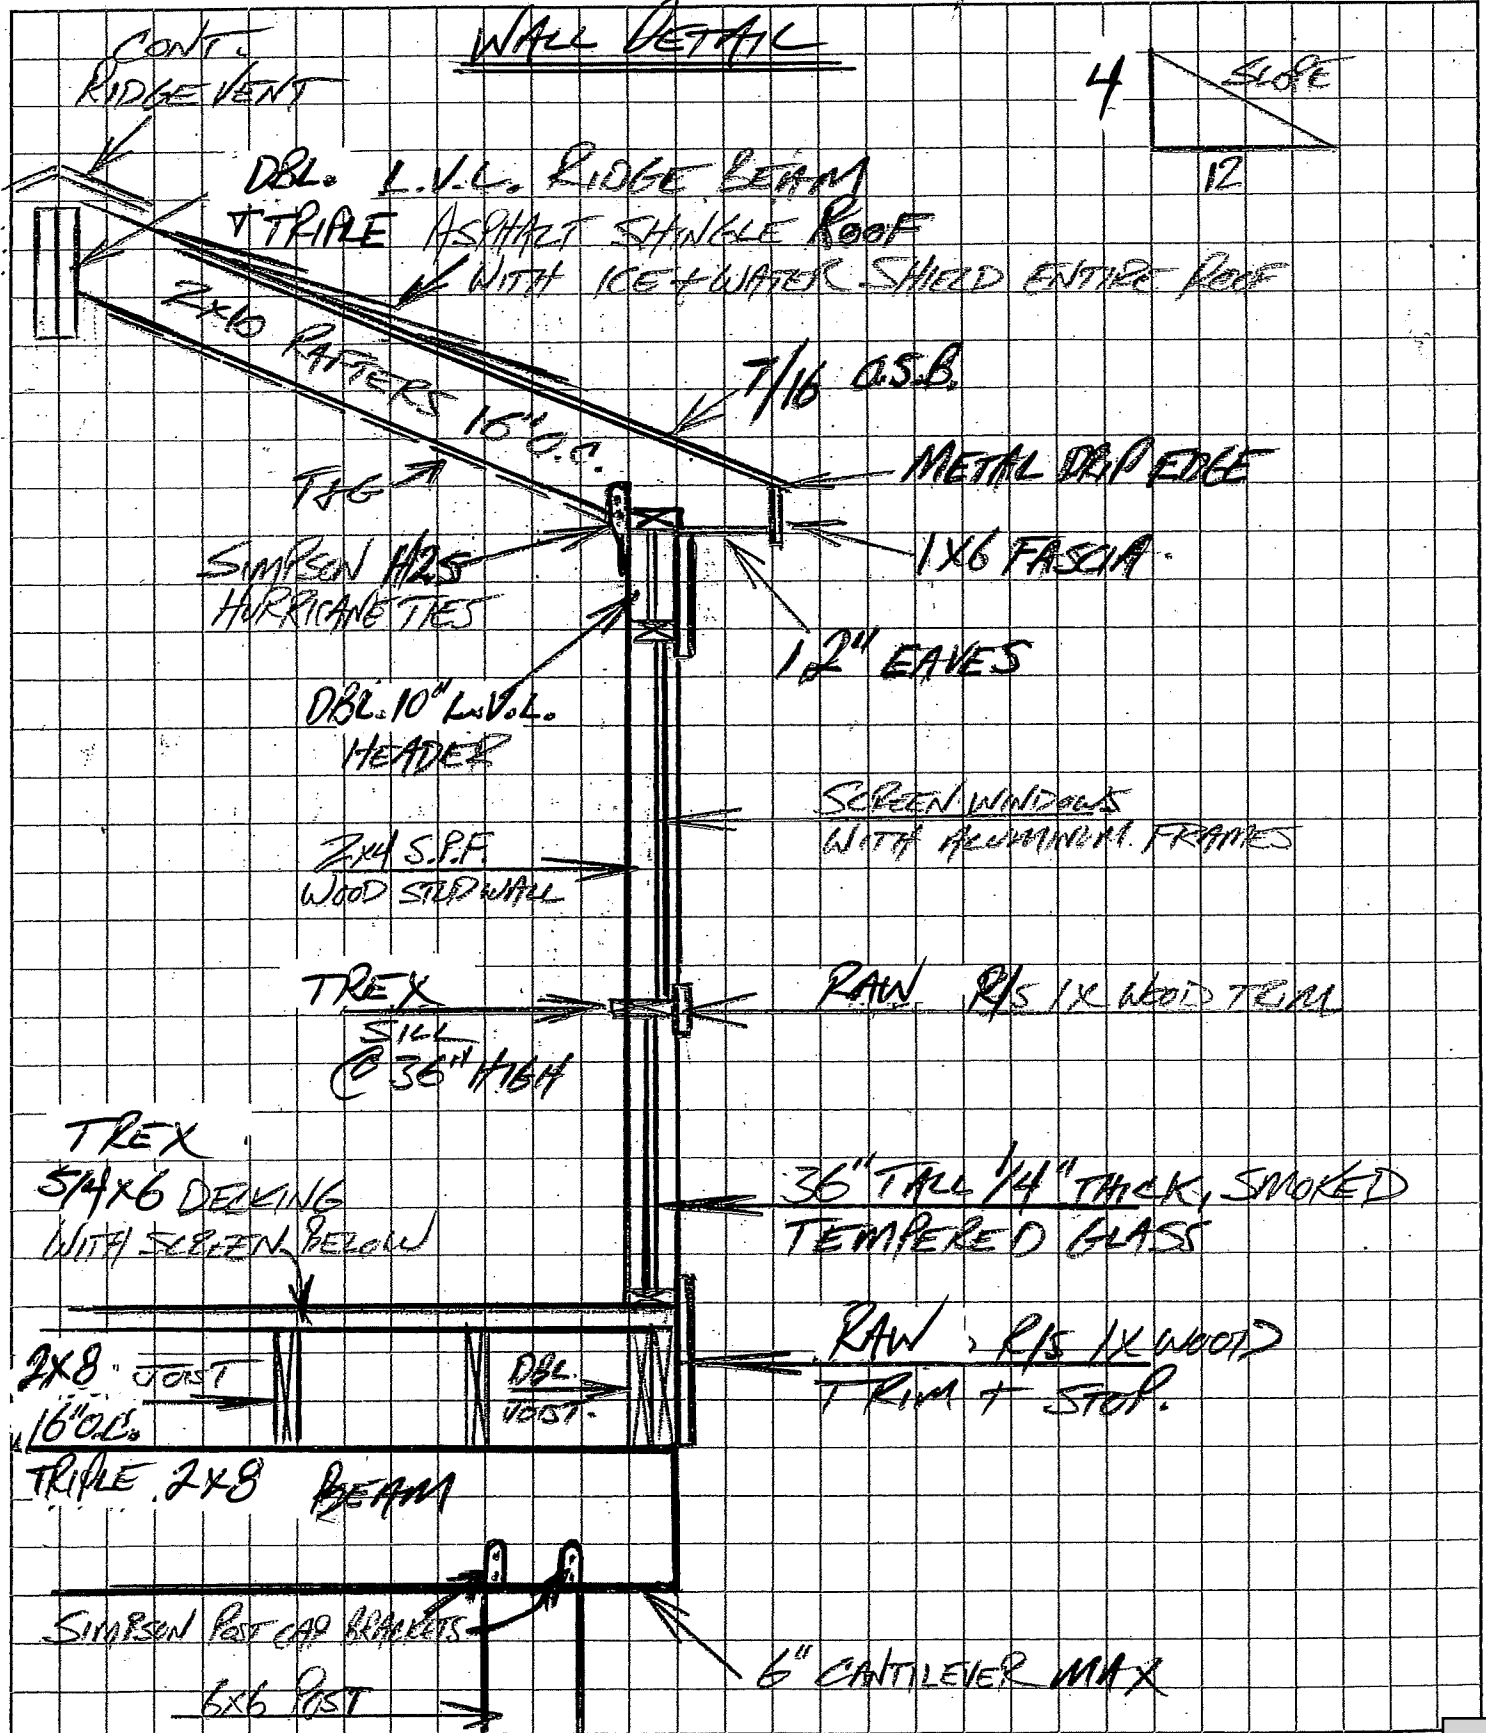 WALL DETAIL
CONT.
RIDGE VENT
4
SLOPE
12
DBL. L.V.L. RIDGE BEAM
TRIPLE ASPHALT SHINGLE ROOF
WITH ICE + WATER SHIELD ENTIRE ROOF
RAFTERS
16" O.C.
7/16 O.S.B.
T&G
METAL DRIP EDGE
SIMPSON H2.5
HURRICANE TIES
1X6 FASCIA
12" EAVES
DBL. 10" L.V.L.
HEADER
SCREEN WINDOWS
WITH ALUMINUM FRAMES
2x4 S.P.F.
WOOD STUD WALL
TREX
SILL
@ 36" HIGH
RAW R/S 1X WOOD TRIM
TREX
5/4x6 DECKING
WITH SCREEN BELOW
36" TALL 1/4" THICK, SMOKED
TEMPERED GLASS
RAW R/S 1X WOOD
TRIM + STOP.
2x8 JOIST
16" O.C.
DBL.
JOIST.
TRIPLE 2x8 BEAM
SIMPSON POST CAP BRACKETS
6" CANTILEVER MAX
6x6 POST